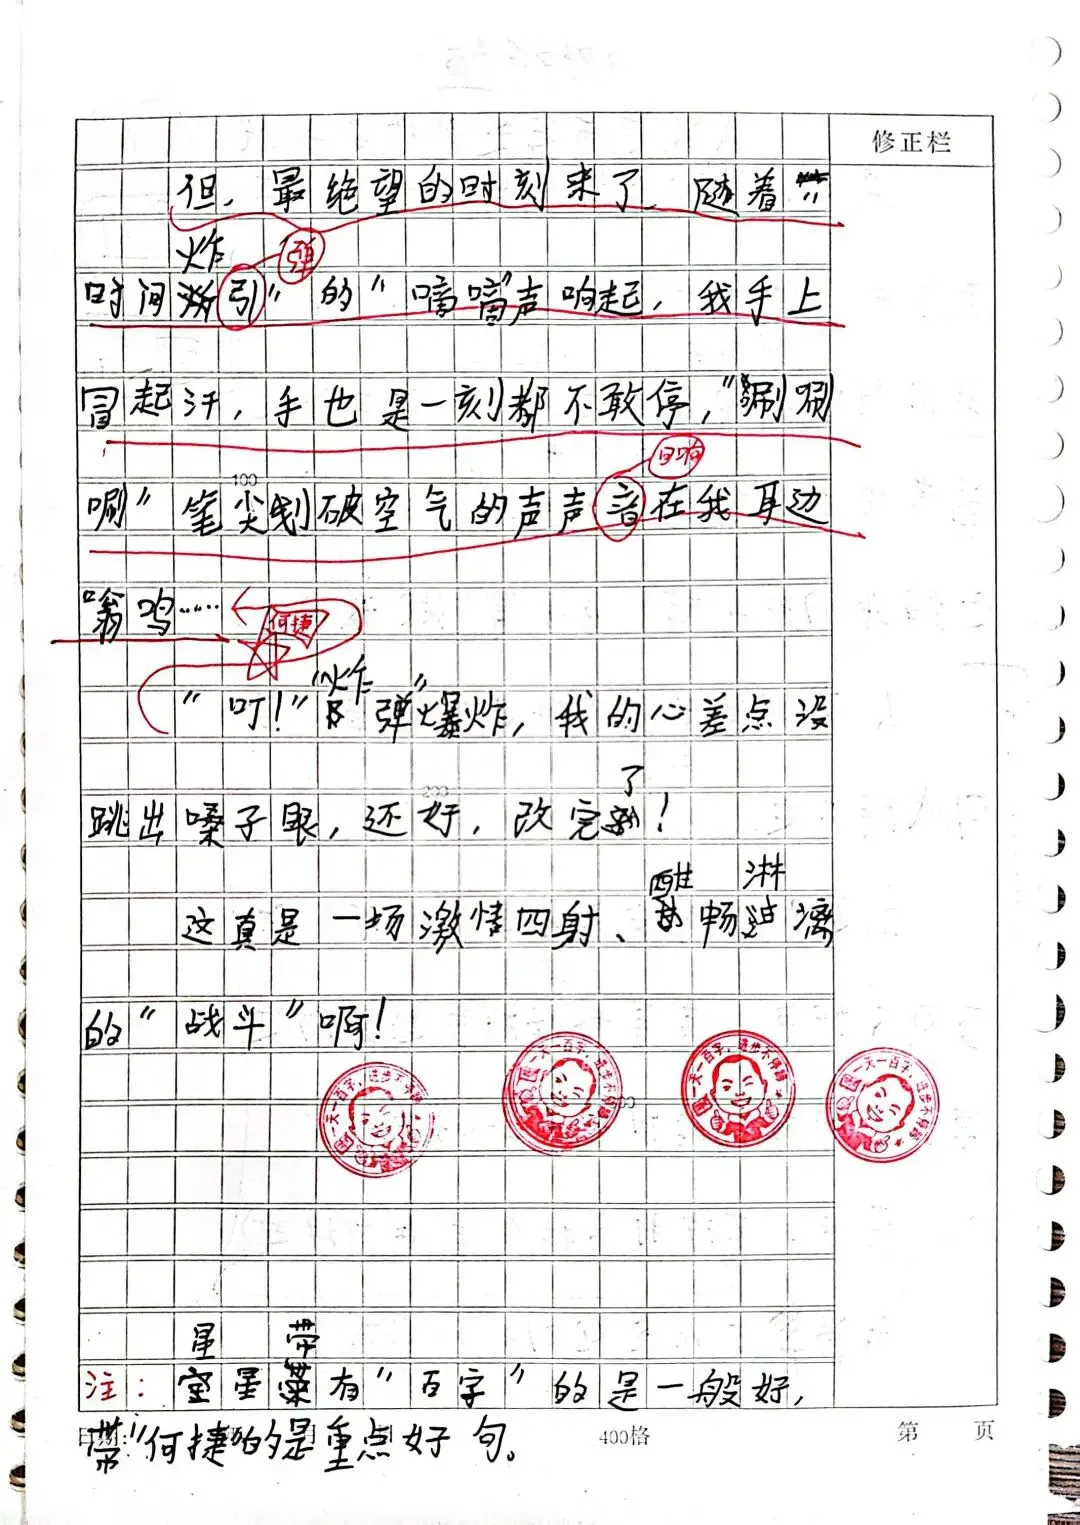 修正栏
但，最绝望的时刻来了，随着"
炸 弹
时间引"的"嘀嘀"声响起，我手上
冒起汗，手也是一刻都不敢停，"唰唰
回响
100
唰"笔尖划破空气的声声音在我耳边
嗡鸣……
何捷
"炸"
"叮！"弹爆炸，我的心差点没
了
200
跳出嗓子眼，还好，改完！
酣 淋
这真是一场激情四射、畅漓
的"战斗"啊！
一天一百字，进步不停蹄
一天一百字，进步不停蹄
一天一百字，进步不停蹄
一天一百字，进步不停蹄
星 带
注：星有"百字"的是一般好，
带"何捷"的是重点好句。
400格 第 页